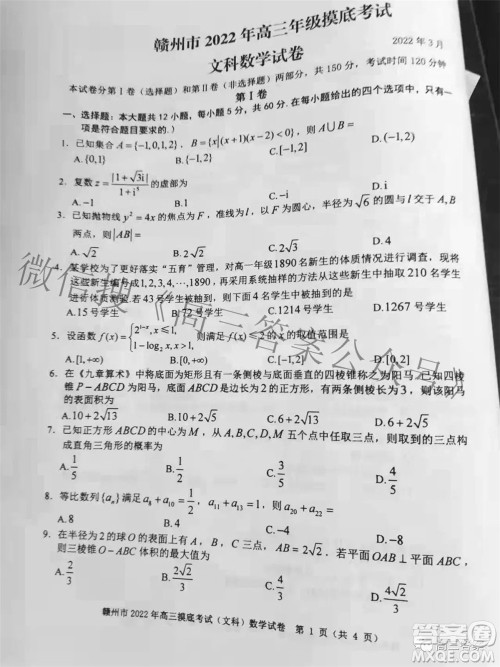 赣州市 2022 年高三年级摸底考试
文科数学试卷
2022 年 3 月
本试卷分第 I 卷（选择题）和第 II 卷（非选择题）两部分，共 150 分，考试时间 120 分钟
第 I 卷
一、选择题：本大题共 12 小题，每小题 5 分，共 60 分．在每小题给出的四个选项中，只有一
项是符合题目要求的．）
1. 已知集合 A={-1,0,1,2}，B={x|(x+1)(x-2)<0}，则 A∪B=
A.{0,1} B.{-1,2} C.[-1,2] D.(-1,2)
2. 复数 z=|1+√3i|/(1+i⁵) 的虚部为
A.-1 B.1 C.-i D.i
3. 已知抛物线 y²=4x 的焦点为 F，准线为 l，以 F 为圆心，半径为 √6 的圆与 l 交于 A, B
两点，则 |AB|=
A.√2 B.2√2 C.2 D.4
4. 某学校为了更好落实“五育”管理，对高一年级1890名新生的体质情况进行调查，现将
这些新生编号成1,2,3,···,1890，再采用系统抽样的方法从这些新生中抽取 210 名学生
进行体质测验．若 43 号学生被抽到，则下面 4 名学生中被抽到的是
A.15 号学生 B.72 号学生 C.610 号学生 D.1267 号学生
5. 设函数 f(x)={2^(1-x), x≤1, 1-log₂x, x>1,
6. 在《九章算术》中将底面为矩形且有一条侧棱与底面垂直的四棱锥称之为阳马．已知四棱
锥 P-ABCD 为阳马，底面 ABCD 是边长为 2 的正方形，有两条侧棱长为 3，则该阳马的
表面积为
7. 已知正方形 ABCD 的中心为 M，从 A,B,C,D,M 五个点中任取三点，则取到的三点构
成直角三角形的概率为
A.1/5 B.2/5 C.3/5 D.4/5
8. 等比数列 {aₙ} 满足 a₈+a₁₀=1/2，a₁₁+a₁₃=
A.8 B.4 C.-4 D.-8
9. 在半径为 2 的球 O 的表面上有 A，B，C 三点，AB=2√2．若平面 OAB⊥平面 ABC，
则三棱锥 O-ABC 体积的最大值为
赣州市 2022 年高三摸底考试（文科）数学试卷 第 1 页（共 4 页）
微信搜《高三答案公众号》